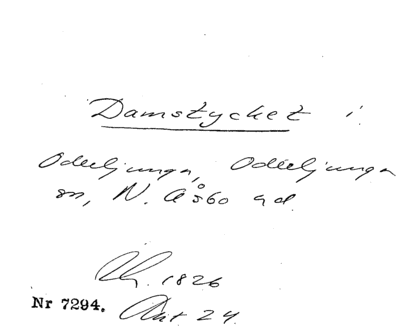 Damstycket i
Oderljunga, Oderljunga
sn, N. Åsbo hd.
1826
Nr 7294. Akt 24.